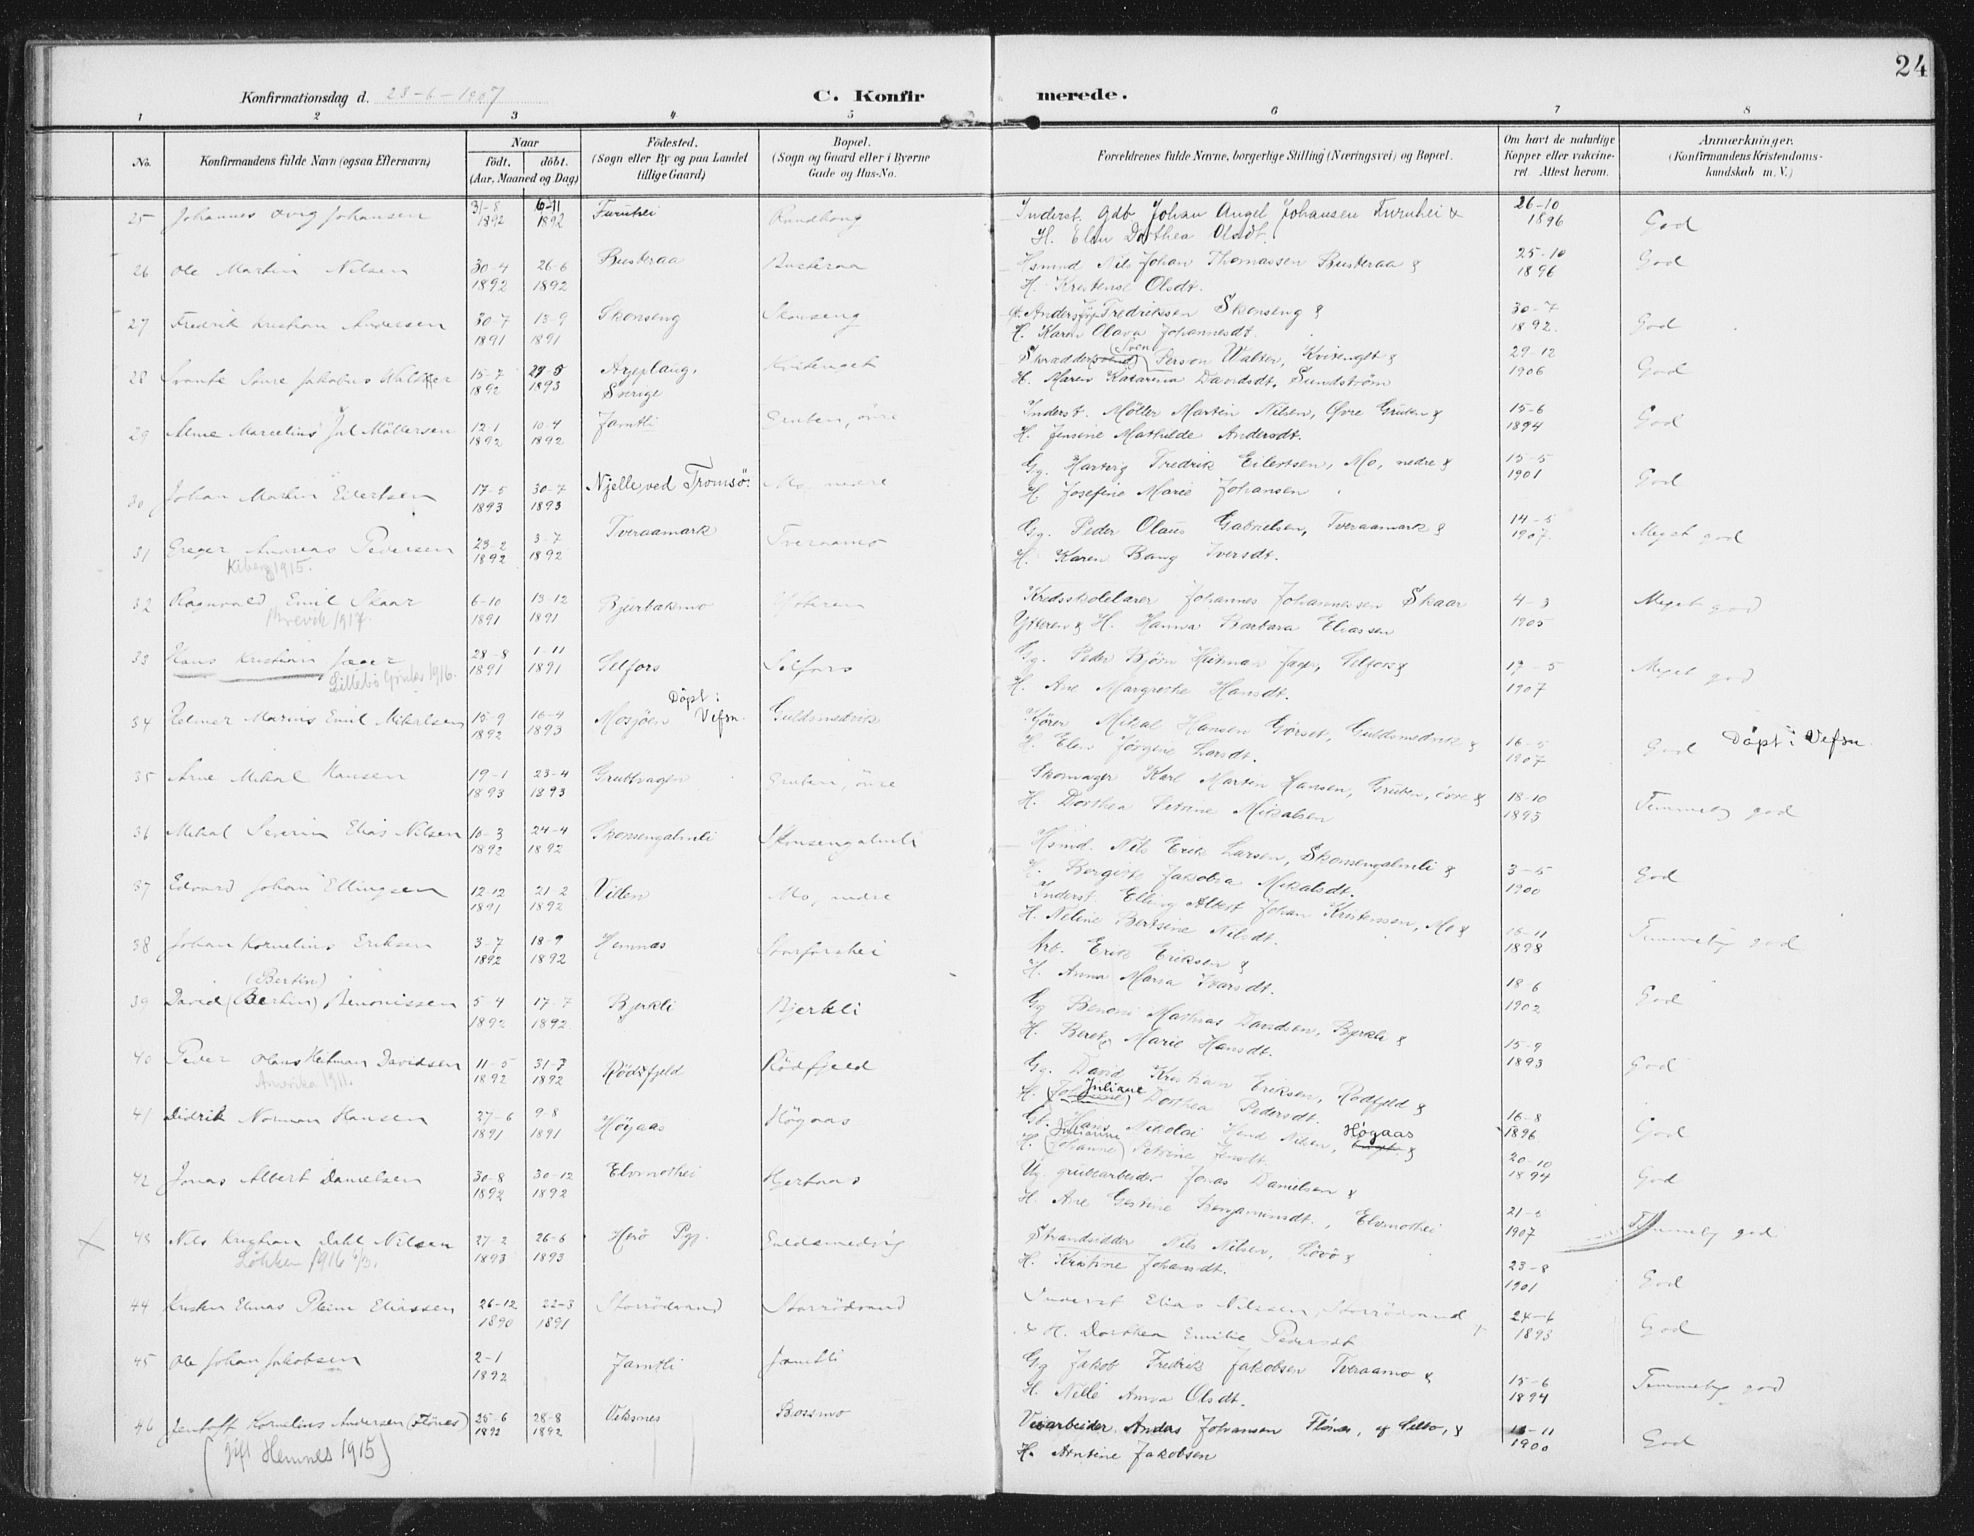 24
Konfirmationsdag d. 23-6-1907 C. Konfirmerede.
1 2 3 4 5 6 7 8
No. Konfirmandens fulde Navn (ogsaa Efternavn) Naar födt, döbt. (Aar, Maaned og Dag) Födested. (Sogn eller By og paa Landet tillige Gaard) Bopæl. (Sogn og Gaard eller i Byerne Gade og Hus-No. Forældrenes fulde Navne, borgerlige Stilling (Næringsvei) og Bopæl. Om havt de naturlige Kopper eller vakcineret. Attest herom. Anmærkninger. (Konfirmandens Kristendomskundskab m. V.)
25 Johannes Johansen 31-8 1892 6-11 1892 Furuhei Inderst. Gdb Johan Angel Johansen Furuhei & 26-10 1896 God
H. Elen Dorthea Olsdt.
26 Ole Martin Nilsen 30-4 1892 26-6 1892 Busteraa Busteraa Hsmnd Nils Johan Thomassen Busteraa & 25-10 1896 God
H. Kristense Olsdt.
27 Fredrik Kristian Andersen 30-7 1891 13-9 1891 Skonseng Skonseng Anders Fredriksen Skonseng & 30-7 1892. God
H. Karen Olava Johannesdt.
28 Jakobus 15-7 1892 27-5 1893 Arjeplaug, Sverige Kvitenget Skrædder (Sven) Person Walter, Kvitenget & 29-12 1906 God
H. Maren Katarina Davidsdt. Sundström
29 Arne Marcelius Jul Möllersen 12-1 1892 10-4 1892 Jamtli Gruben, övre Inderst. Møller Martin Nilsen, Øvre Gruben & 15-6 1894 God
H. Jensine Mathilde Andersdt.
30 Johan Martin Eilertsen 17-5 1893 30-7 1893 Njelle, ved Tromsö. Mo, nedre Gg. Hartvig Fredrik Eilertsen, Mo, nedre & 15-5 1901 God
H. Josefine Marie Johansen
31 Greger Andreas Pedersen 23-2 1892 3-7 1892 Tveraamark Tveraamo Gg. Peder Olaus Gabrielsen, Tveraamark & 14-5 1907. Meget god
Kiberg 1915. H. Karen Bang Iversdt.
32 Ragnvald Emil Skaar 6-10 1891 13-12 1891 Bjurbæksmo Ytteren Kredsskolelærer Johannes Johannessen Skaar 4-3 1905 Meget god
Brevik 1917. Ytteren & H. Hanna Barbara Eliassen
33 Hans Kristian Jæger 28-8 1891 1-11 1891 Selfors Selfors Gg. Peder Bjørn Heitman Jæger, Selfors & 17-5 1907 Meget god
Lillebö 1916. H. Ane Margrethe Hansdt.
34 Helmer Marius Emil Mikalsen 15-9 1892 16-4 1893 Mosjöen Döpt i Vefsn. Guldsmedvik Mikal Hansen Gjørset, Guldsmedvik & 16-5 1907 God Döpt i Vefsn.
H. Elen Jørgine Larsdt.
35 Arne Mikal Hansen 19-1 1893 23-4 1893 Grubhagen Gruben, övre Skomager Karl Martin Hansen, Gruben, övre & 18-10 1895 Temmelig god
H. Dorthea Petrine Mikalsen
36 Mikal Severin Elias Nilsen 10-3 1892 24-4 1892 Skonsengalmli Skonsengalmli Hsmd. Nils Erik Larsen, Skonsengalmli & 3-5 1900 God
H. Bergitte Jakobea Mikalsdt.
37 Edvard Johan Ellingsen 12-12 1891 21-2 1892 Villen Mo, nedre Inderst. Elling Albert Johan Kristensen, Mo & 16-11 1898 Temmelig god
H. Neline Bertsine Nilsdt.
38 Johan Kornelius Eriksen 3-7 1892 18-9 1892 Hemnæs Storforshei Arb. Erik Eriksen & 18-6 1902 God
H. Anna Maria Ivarsdt.
(Bertin)
39 David (Bertin) Benonissen 5-4 1892 17-7 1892. Bjerkli Bjerkli Gg Benoni Mathias Davidsen, Bjerkli & 15-9 1893 God
H. Beret Marie Hansdt.
40 Peder Olaus Heitman Davidsen 11-5 1892 31-7 1892 Rödfjeld Rödfjeld Gg. David Kristian Eriksen, Rödfjeld & 16-8 1896 God
Amerika 1911. H. Juliane Dorthea Pedersdt.
41 Didrik Norman Hansen 27-6 1891 9-8 1891 Högaas Högaas Gb. Hans Nikolai Nilsen, Högaas & 20-10 1894 God
H. Julianne (Johanne) Petrine Jensdt.
42 Jonas Albert Danielsen 30-8 1892 30-12 1892 Elvmothei Hjertaas Ug. grubearbeider Jonas Danielsen & 21-6 1907 Temmelig god
H. Ane Gertine Benjaminsdt., Elvmothei
43 Nils Kristian Dahl Nilsen 27-2 1893 26-6 1893 Herö Pgj. Guldsmedvig Strandsidder Nils Nilsen, & 23-8 1901 God
Løkken 1916 6/3. H. Kristine Johansdt.
44 Kristen Elinas Pleim Eliassen 26-12 1890 22-3 1891 Storrödvand Storrödvand Inderst Elias Nilssen, Storrödvand 24-6 1893 God
& H. Dorthea Emilie Pedersdt
45 Ole Johan Jakobsen 2-1 1892 Jamtli Jamtli Gg Jakob Fredrik Jakobsen Tveraamo & 15-6 1894 Temmelig god
H. Nelle Anna Olsdt.
46 Jentoft Kornelius Andersen (Flönes) 25-6 1892 28-8 1892 Veksnes Bossmo Veiarbeider Anders Johansen Flönes, & 16-11 1900 God
(gift Hemnes 1915) H. Arntine Jakobsen